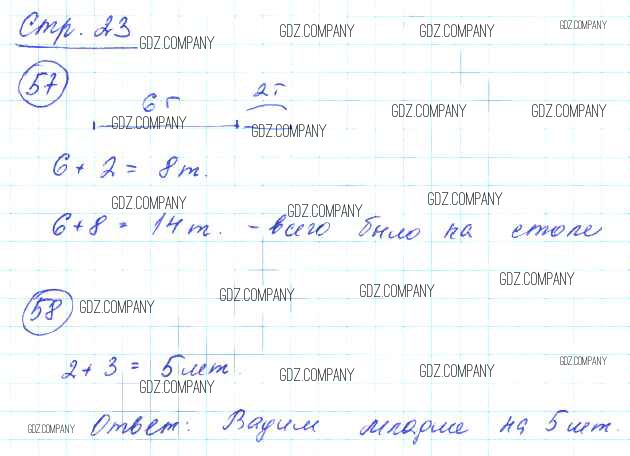 Стр. 23
GDZ.COMPANY GDZ.COMPANY GDZ.COMPANY GDZ.COMPANY
57
6 г 2 г
GDZ.COMPANY GDZ.COMPANY GDZ.COMPANY GDZ.COMPANY
6 + 2 = 8 т.
GDZ.COMPANY GDZ.COMPANY GDZ.COMPANY
6 + 8 = 14 т. - всего было на столе
58
GDZ.COMPANY GDZ.COMPANY GDZ.COMPANY GDZ.COMPANY
2 + 3 = 5 лет.
GDZ.COMPANY GDZ.COMPANY GDZ.COMPANY GDZ.COMPANY
GDZ.COMPANY Ответ: Вадим младше на 5 лет.